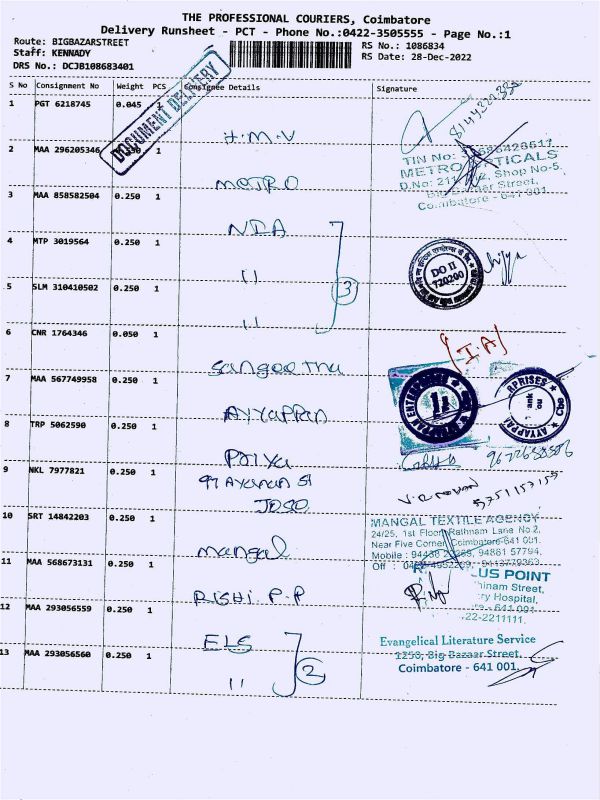 THE PROFESSIONAL COURIERS, Coimbatore
Delivery Runsheet - PCT - Phone No.:0422-3505555 - Page No.:1
Route: BIGBAZARSTREET
Staff: KENNADY
DRS No.: DCJB108683401
RS No.: 1086834
RS Date: 28-Dec-2022
S No Consignment No Weight PCS Consignee Details Signature
DOCUMENT DELIVERY
1 PGT 6218745 0.045
H.M.V
2 MAA 296205346 1
METRO
TIN No:
METRO OPTICALS
Shop No-5,
Big Bazaar Street,
Coimbatore - 641 001
3 MAA 858582504 0.250 1
NIA
4 MTP 3019564 0.250 1
"
3
DO II
720200
5 SLM 310410502 0.250 1
"
6 CNR 1764346 0.050 1
Sangeetha
(IA)
7 MAA 567749958 0.250 1
AYYAPPAN
AYYAPPAN ENTERPRISES
8 TRP 5062590 0.250 1
PRIYA
9 NKL 7977821 0.250 1
97 Ayanan St
JOSO
10 SRT 14842203 0.250 1
mangal
MANGAL TEXTILE AGENCY
24/25, 1st Floor, Rathnam Lane No.2,
Near Five Corner, Coimbatore-641 001.
94881 57794.
11 MAA 568673131 0.250 1
RISHI P.P
LUS POINT
Street,
Hospital,
12 MAA 293056559 0.250 1
ELS
13 MAA 293056560 0.250 1
"
2
Evangelical Literature Service
1250, Big Bazaar Street,
Coimbatore - 641 001.